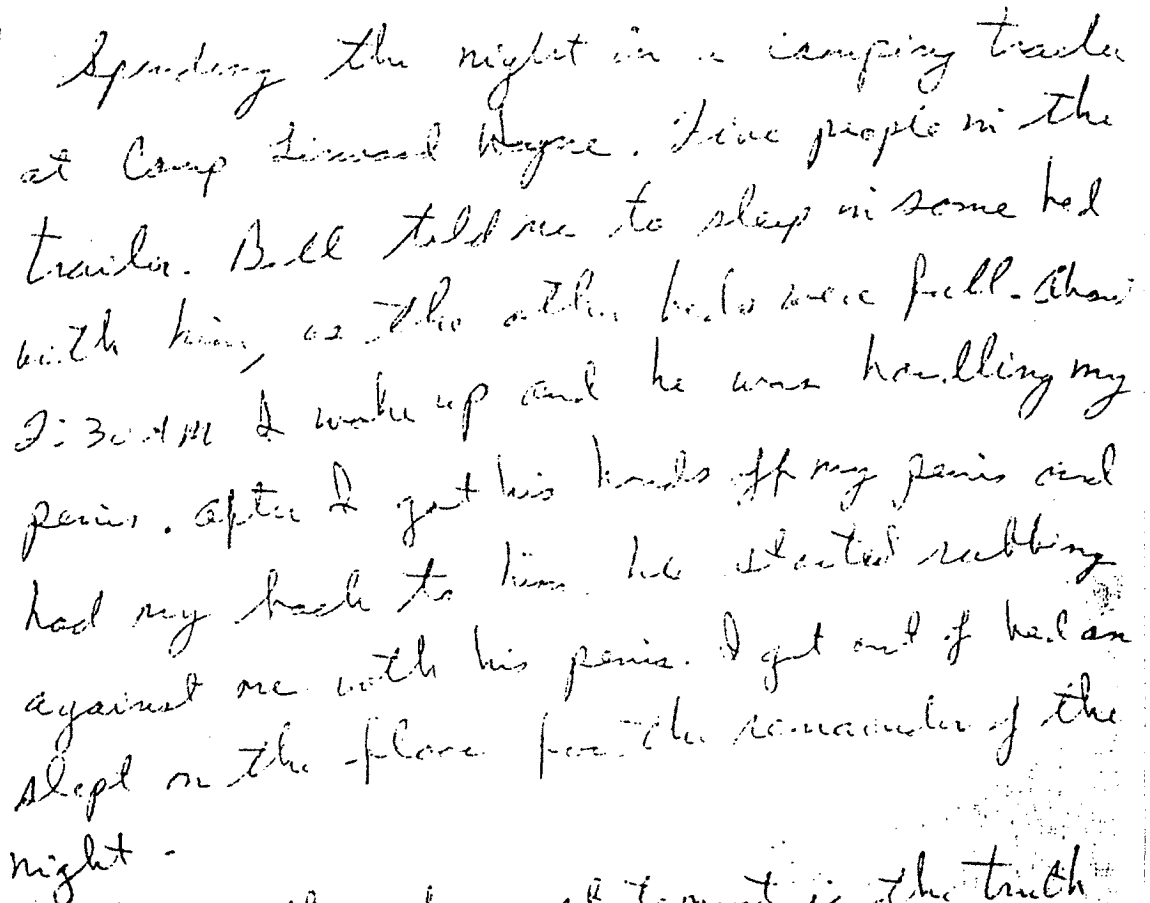 Spending the night in a camping trailer
at Camp Wayne. Five people in the
trailer. Bill told me to sleep in same bed
with him, as the other beds were full. About
2:30 AM I woke up and he was handling my
penis. After I got his hands off my penis and
had my back to him he started rubbing
against me with his penis. I got out of bed an
slept on the floor for the remainder of the
night.
statement is the truth